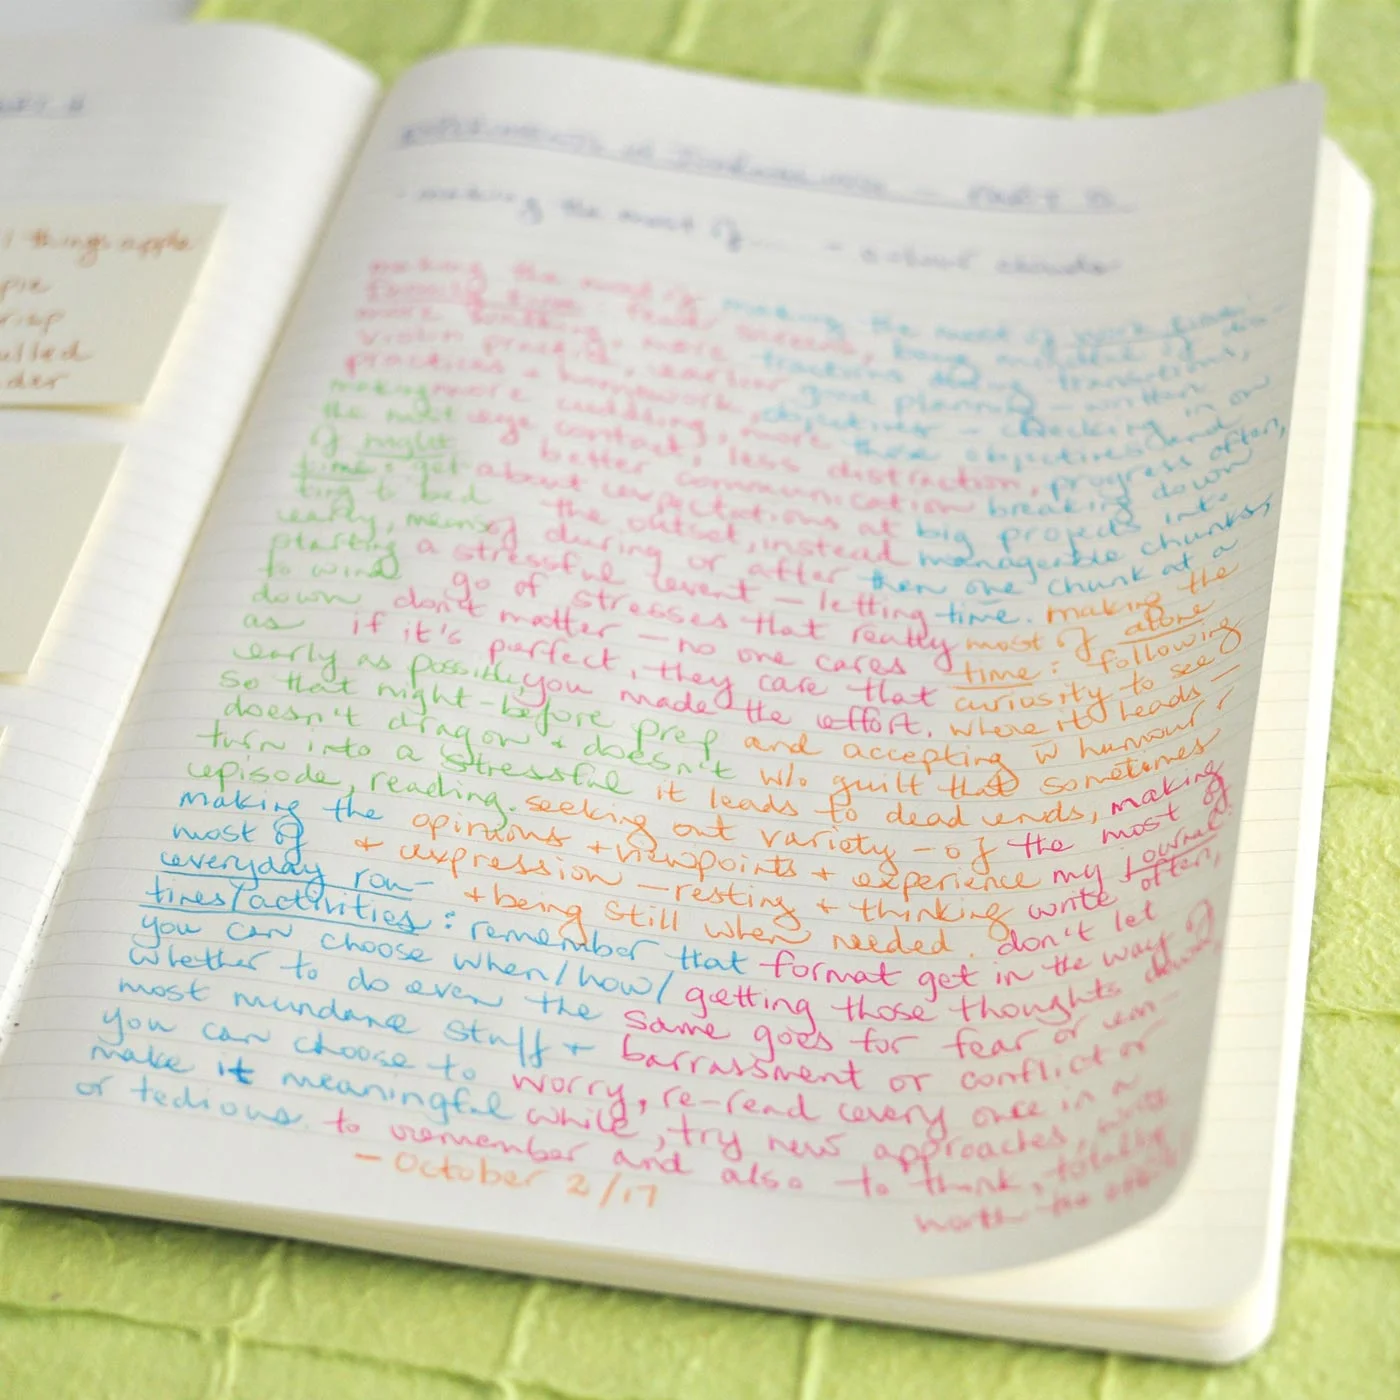 things apple
pie
EXPERIMENTS IN JOURNALING – PART
making the most of... – colour clouds
making the most of making the most of work time:
family time: fewer screens, being mindful of dis-
more walking, more tractions during transitions,
violin practice, earlier good planning – written
practices + homework, objectives – checking in on
making more cuddling, more those objectives and
the most eye contact, less distraction, progress often,
of night better communication breaking down
time: get- about expectations at big projects into
ting to bed the outset, instead manageable chunks,
early, means of during or after then one chunk at a
starting a stressful event – letting time. making the
to wind go of stresses that really most of alone
down don't matter – no one cares time: following
as if it's perfect, they care that curiosity to see
early as possible, you made the effort. where it leads –
so that night-before prep and accepting w humour +
doesn't drag on + doesn't w/o guilt that sometimes
turn into a stressful it leads to dead ends, making
episode, reading. seeking out variety – of the most of
making the opinions + viewpoints + experience my journal:
most of + expression – resting + thinking write often,
everyday rou- + being still when needed. don't let
tines/activities: remember that format get in the way of
you can choose when/how/ getting those thoughts down,
whether to do even the same goes for fear or em-
most mundane stuff + barrassment or conflict or
you can choose to worry, re-read every once in a
make it meaningful while, try new approaches, write
or tedious. to remember and also to think, totally
worth the effort.
– October 2/17